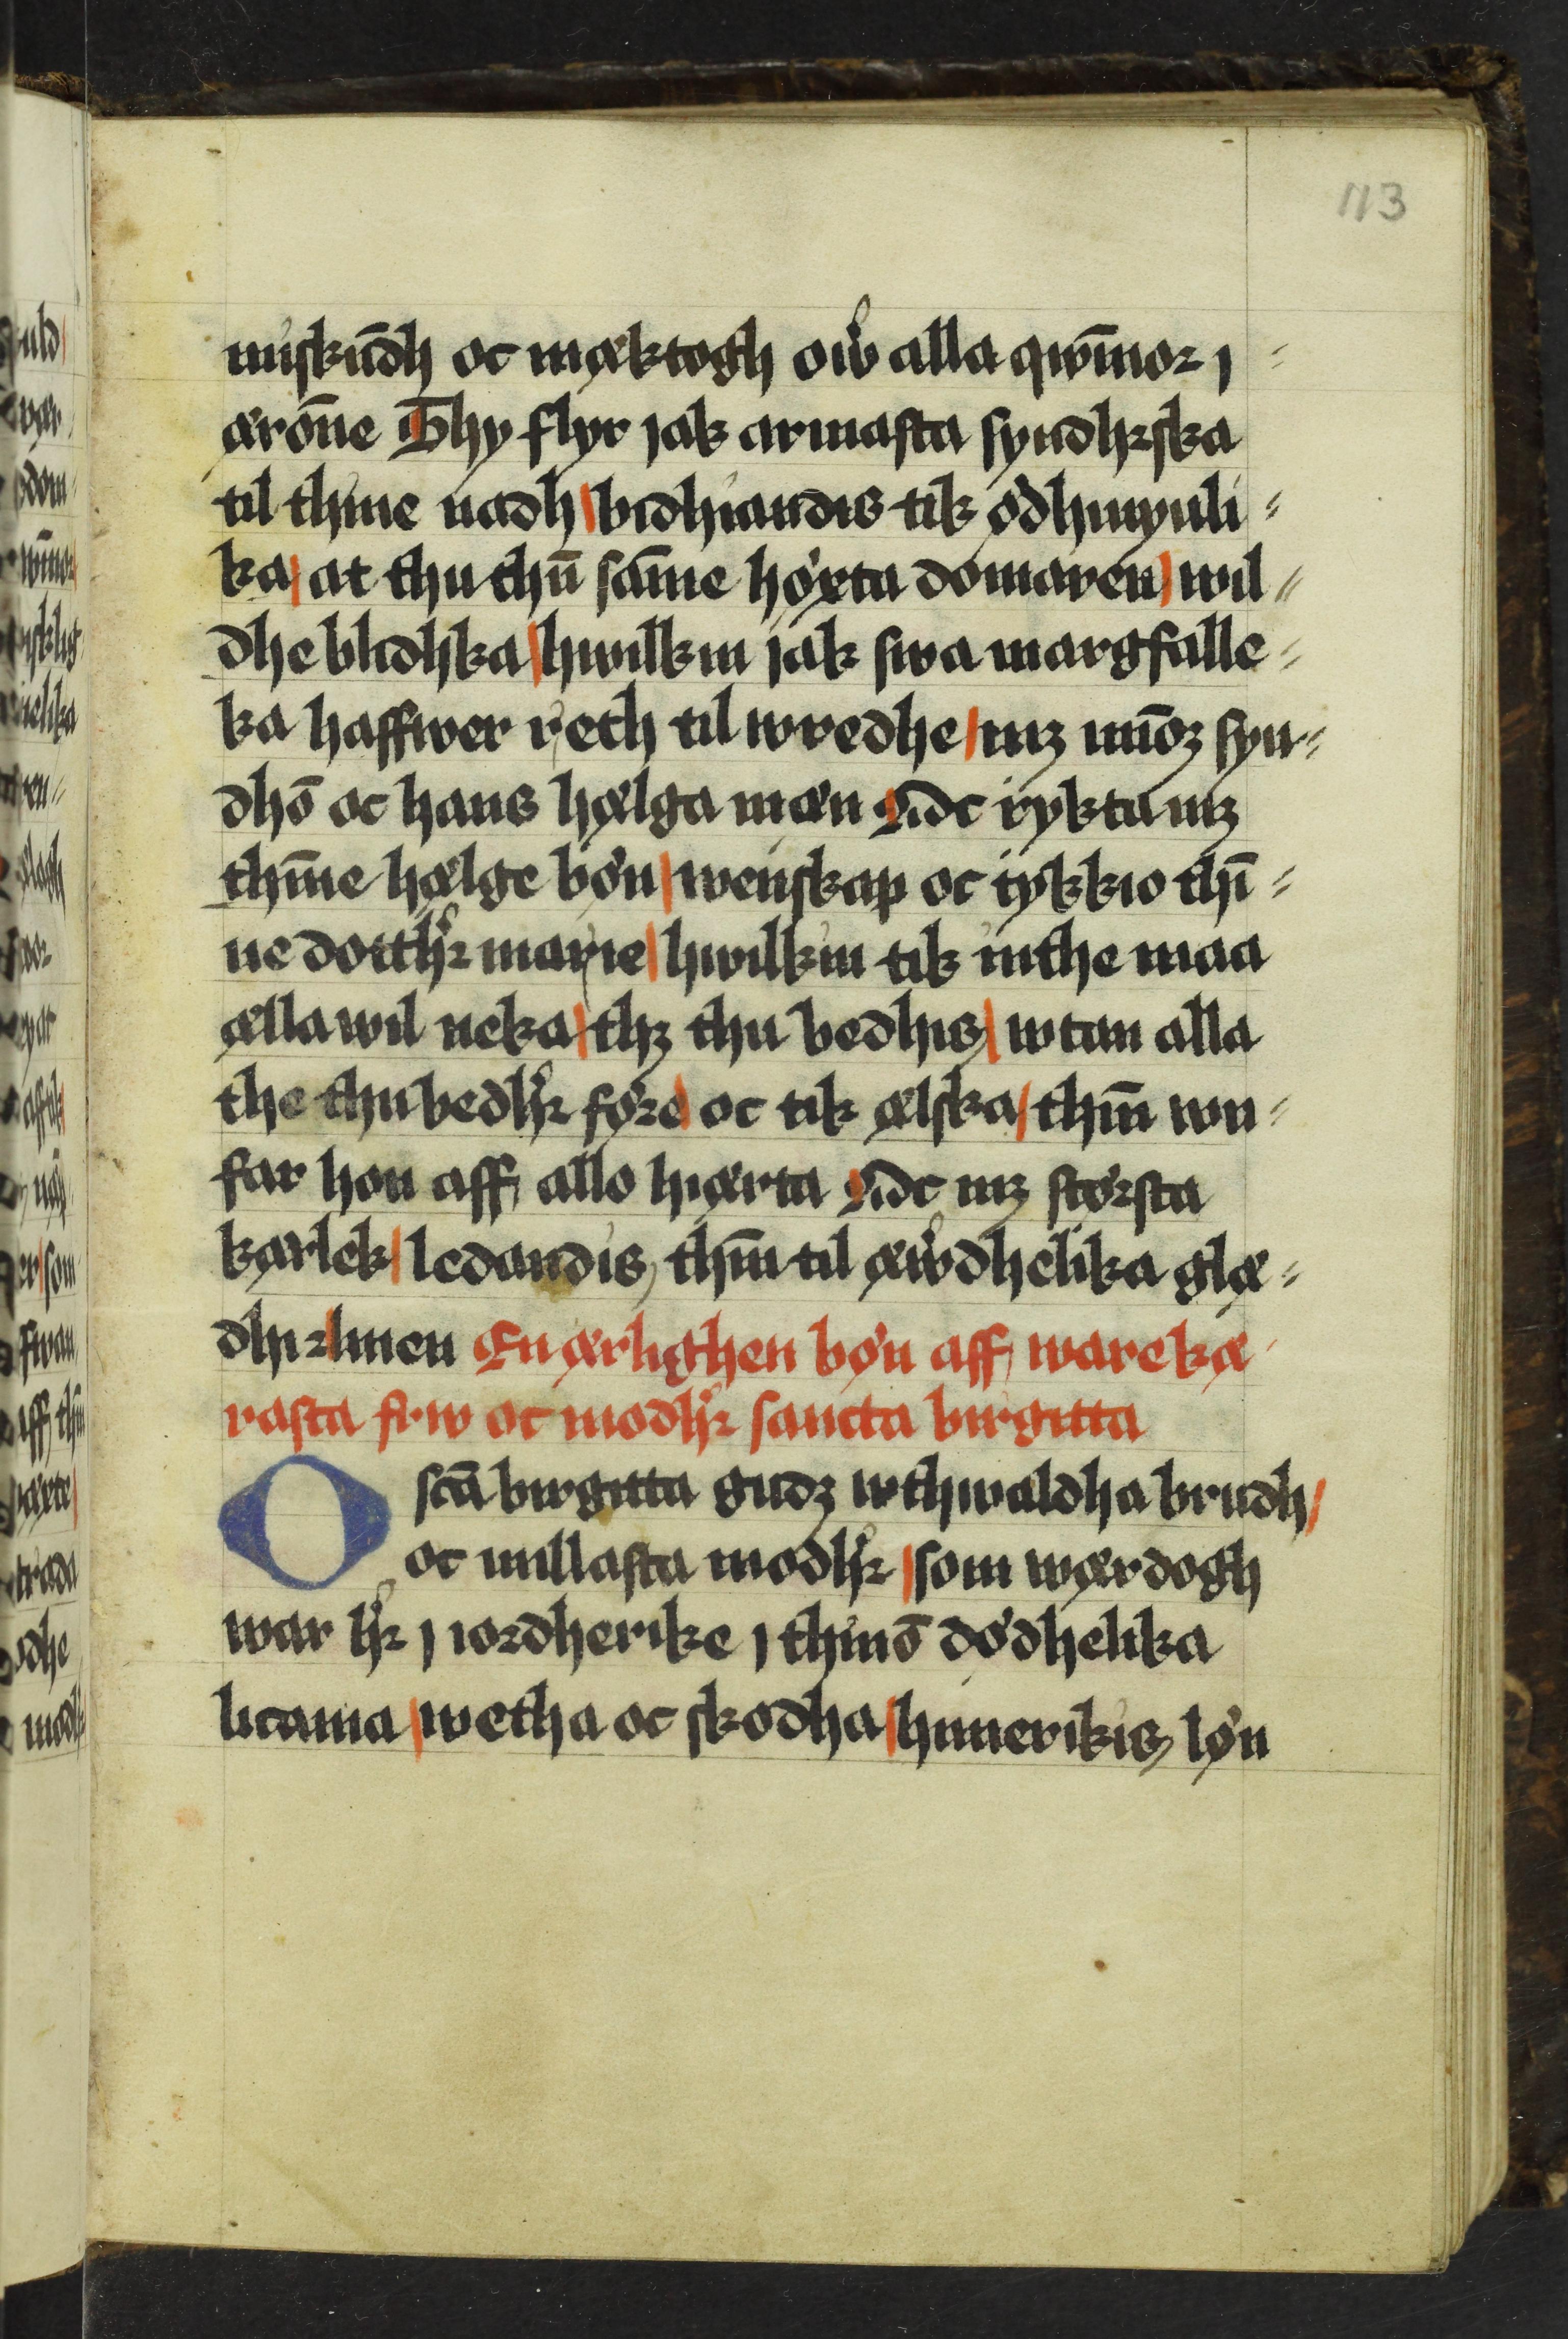 113
miskūdh oc mæktogh ow̓ alla qwīnor j =
ærōne Thy flyr jak armasta syndhꝛska
til thine nadh / bidhiandis tik ødhmyuli =
ka / at thu thn̄ sāme høxta domaren / wil =
dhe blidhka / hwilkin jak swa margfalle =
ka haffwer reth til wredhe / mꝫ mīoꝫ syn =
dhō oc hans hælga mæn Oc tykta mꝫ
thīne hælge bøn / wenskap oc tykkio thī =
ne dotth̓ꝛ marie / hwilkin tik inthe maa
ælla wil neka / thꝫ thu bedhis / wtan alla
the thu bedh̓ꝛ føꝛe oc tik ælska / thīn wn =
far hon aff allo hiærta Oc mꝫ størsta
kærlek / ledandis thīn til æw̓dhelika glæ =
dhiꝛ Amen En ærlighen bøn aff wareka
rasta frw oc modh̓ꝛ sancta birgitta
O scā birgitta gudꝫ wthwaldha brudh /
oc millasta modh̓ꝛ / som wærdogh
war h̓ꝛ j ioꝛdherike j thinō dødhelika
licama / wetha oc skodha / himerikis løn